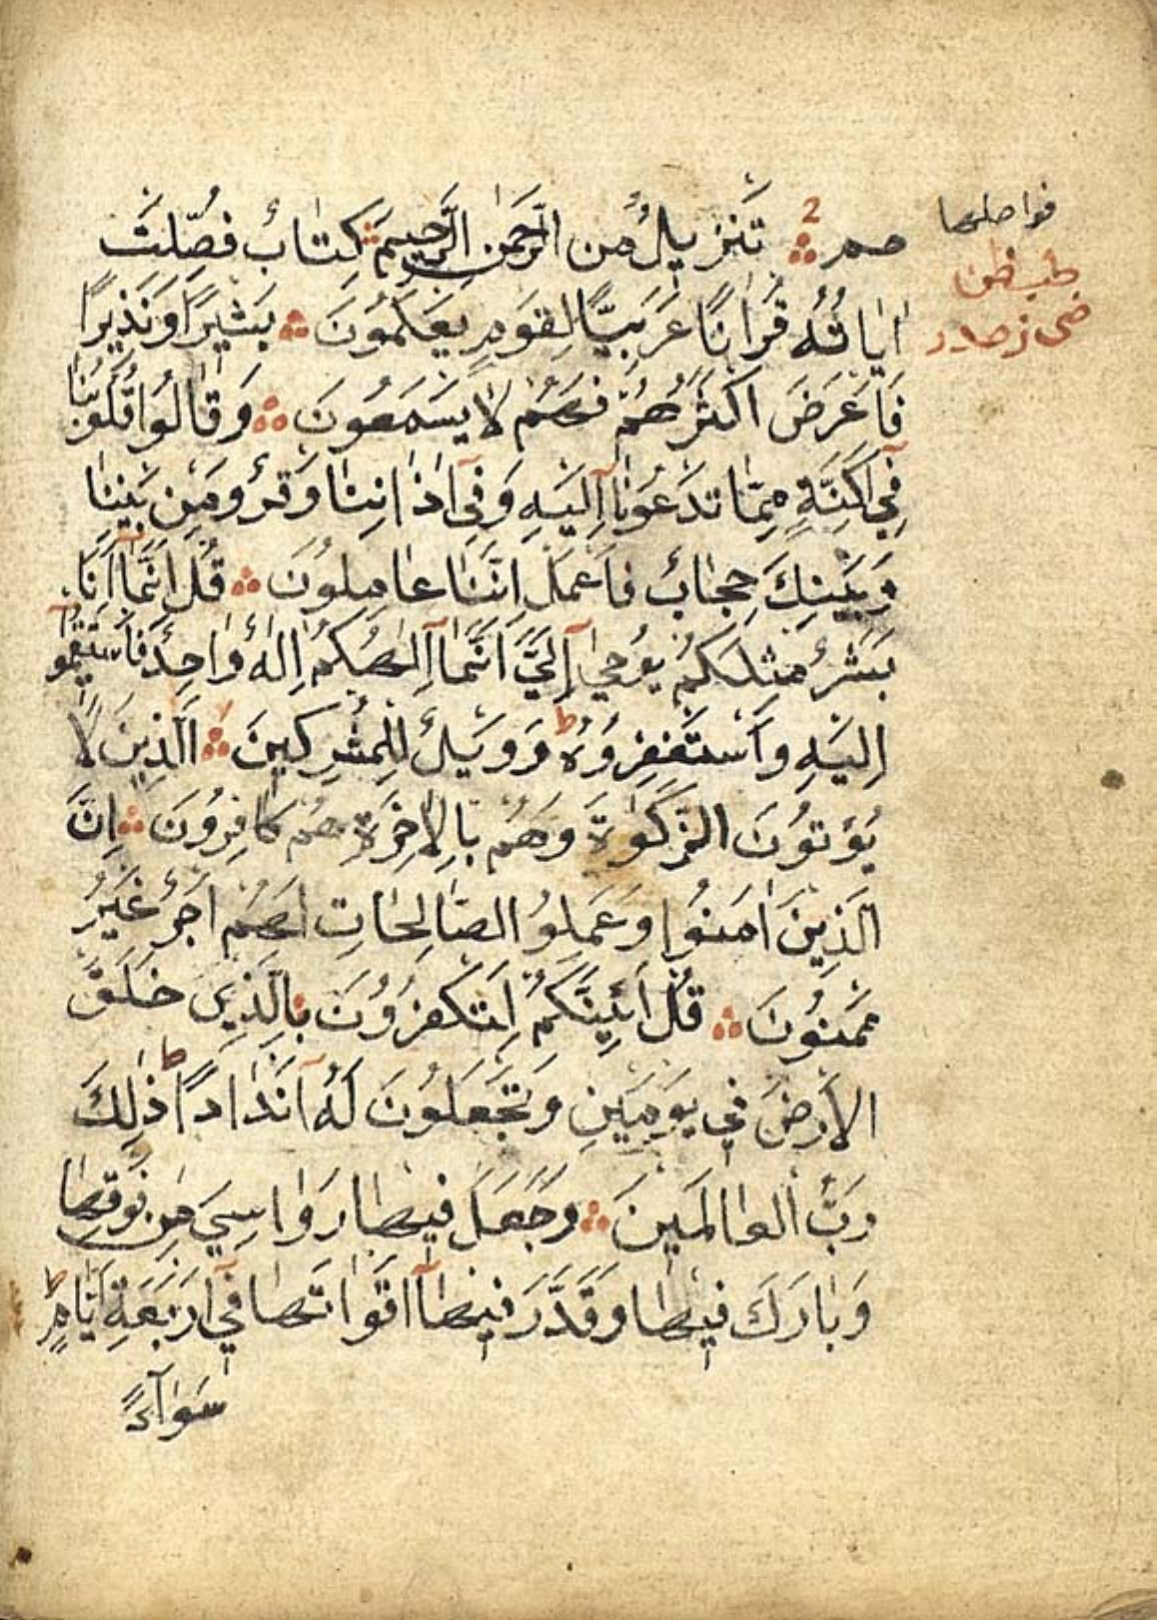 فواصلها
حم ۞ تَنزِيلٌ مِن الرَّحمٰنِ الرَّحِيمِ ۞ كِتَابٌ فُصِّلَت
اٰيَاتُهُ قُرْاٰنًا عَرَبِيًّا لِقَومٍ يَعلَمُونَ ۞ بَشِيرًا وَنَذِيرًا
فَاَعرَضَ اَكثَرُهُم فَهُم لَا يَسمَعُونَ ۞ وَقَالُوا قُلُوبُنَا
فِي اَكِنَّةٍ مِمَّا تَدعُونَا اِلَيهِ وَفِي اٰذَانِنَا وَقرٌ وَمِن بَينِنَا
وَبَينِكَ حِجَابٌ فَاعمَل اِنَّنَا عَامِلُونَ ۞ قُل اِنَّمَا اَنَا
بَشَرٌ مِثلُكُم يُوحٰى اِلَيَّ اَنَّمَا اِلٰهُكُم اِلٰهٌ وَاحِدٌ فَاستَقِيمُوا
اِلَيهِ وَاستَغفِرُوهُ ط وَوَيلٌ لِلمُشرِكِينَ ۞ اَلَّذِينَ لَا
يُؤتُونَ الزَّكٰوةَ وَهُم بِالاٰخِرَةِ هُم كَافِرُونَ ۞ اِنَّ
الَّذِينَ اٰمَنُوا وَعَمِلُوا الصَّالِحَاتِ لَهُم اَجرٌ غَيرُ
مَمنُونٍ ۞ قُل اَئِنَّكُم لَتَكفُرُونَ بِالَّذِي خَلَقَ
الاَرضَ فِي يَومَينِ وَتَجعَلُونَ لَهُ اَندَادًا ط ذٰلِكَ
رَبُّ العَالَمِينَ ۞ وَجَعَلَ فِيهَا رَوَاسِيَ مِن فَوقِهَا
وَبَارَكَ فِيهَا وَقَدَّرَ فِيهَا اَقوَاتَهَا فِي اَربَعَةِ اَيَّامٍ ط
سَوَآءً